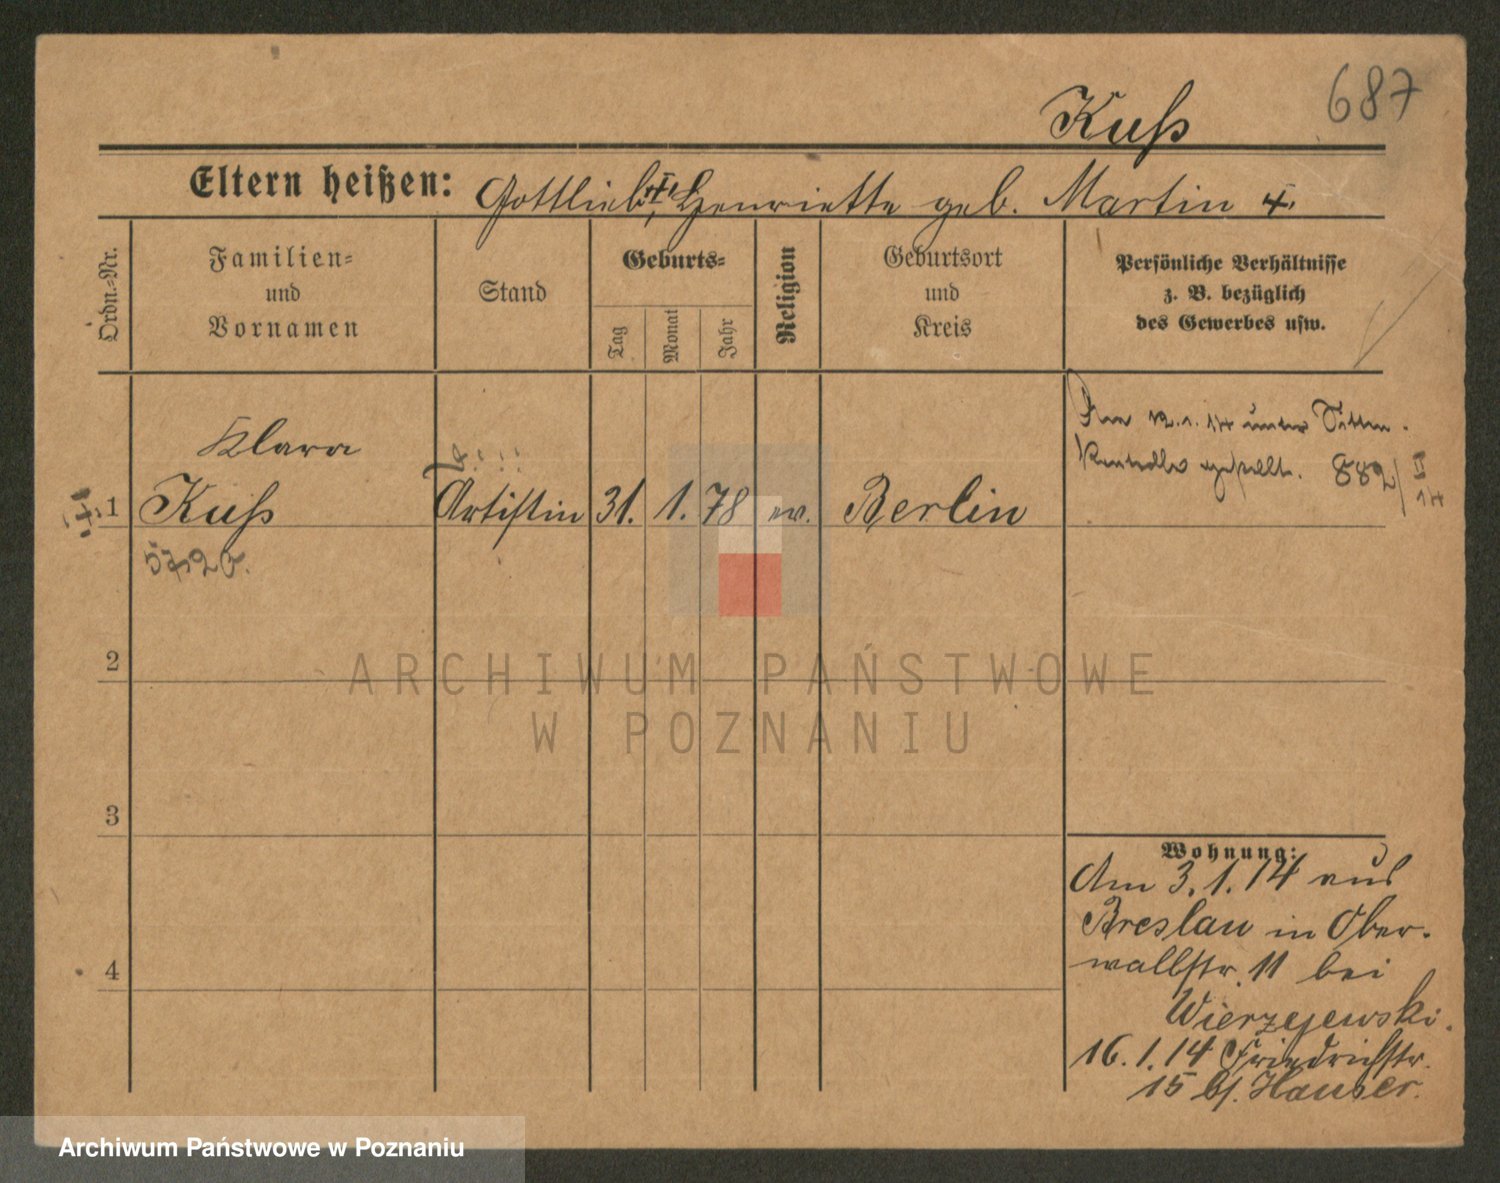 687
Kuß
Eltern heißen: Gottlieb, Henriette geb. Martin
Ordn.-Nr.
Familien-
und
Vornamen
Stand
Geburts-
Tag
Monat
Jahr
Religion
Geburtsort
und
Kreis
Persönliche Verhältnisse
z. B. bezüglich
des Gewerbes usw.
Klara
1 Kuß Artistin 31. 1. 78 ev. Berlin
Am 12.1.14 unter Sitten-
kontrolle gestellt. 882/II 14
2
3
4
Wohnung:
Am 3.1.14 aus
Breslau in Ober-
wallstr. 11 bei
Wierzejewski.
16.1.14 Friedrichstr.
15 bei Hauser.
ARCHIWUM PAŃSTWOWE
W POZNANIU
Archiwum Państwowe w Poznaniu